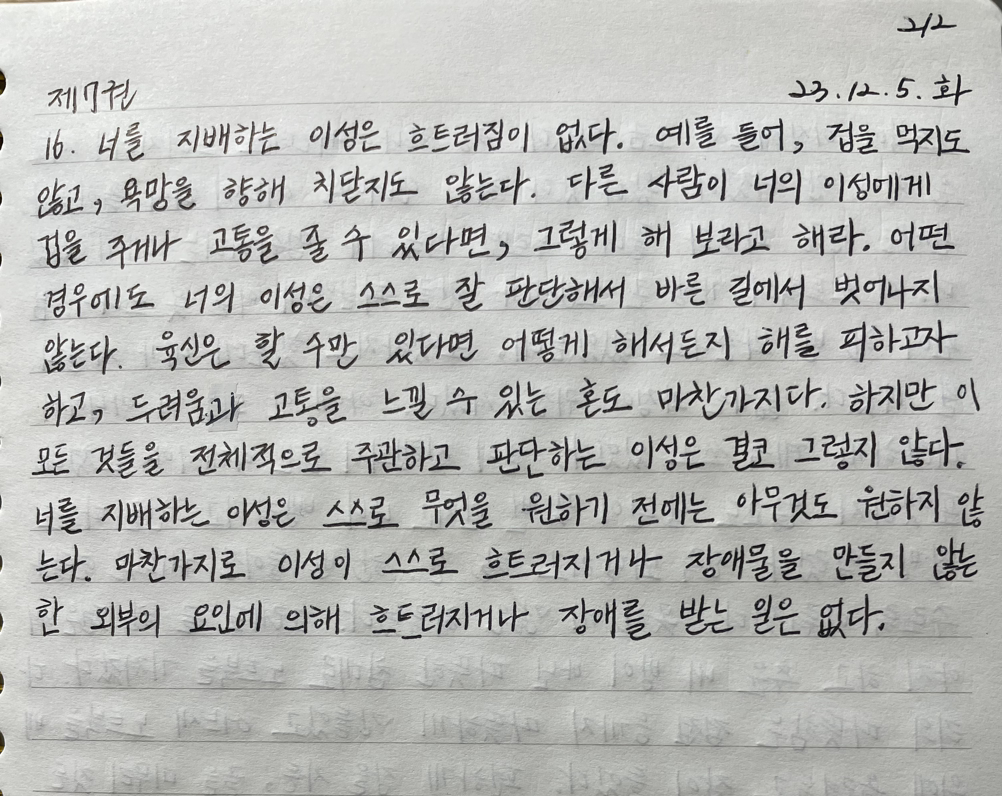 2/2
제7권 23.12.5. 화
16. 너를 지배하는 이성은 흐트러짐이 없다. 예를 들어, 겁을 먹지도
않고, 욕망을 향해 치닫지도 않는다. 다른 사람이 너의 이성에게
겁을 주거나 고통을 줄 수 있다면, 그렇게 해 보라고 해라. 어떤
경우에도 너의 이성은 스스로 잘 판단해서 바른 길에서 벗어나지
않는다. 육신은 할 수만 있다면 어떻게 해서든지 해를 피하고자
하고, 두려움과 고통을 느낄 수 있는 혼도 마찬가지다. 하지만 이
모든 것들을 전체적으로 주관하고 판단하는 이성은 결코 그렇지 않다.
너를 지배하는 이성은 스스로 무엇을 원하기 전에는 아무것도 원하지 않
는다. 마찬가지로 이성이 스스로 흐트러지거나 장애물을 만들지 않는
한 외부의 요인에 의해 흐트러지거나 장애를 받는 일은 없다.